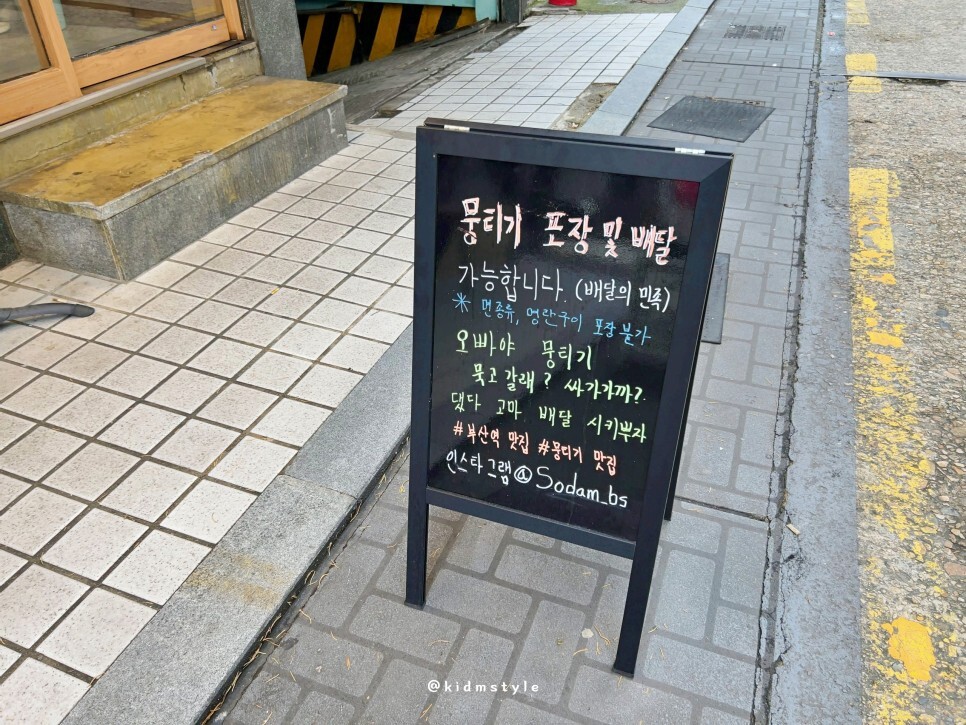 뭉티기 포장 및 배달
가능합니다. (배달의 민족)
※ 면종류, 명란구이 포장불가
오빠야 뭉티기
묵고 갈래? 싸가가까?
댔다 고마 배달 시키뿌자
#부산역 맛집 #뭉티기 맛집
인스타그램@Sodam_bs
@kidmstyle